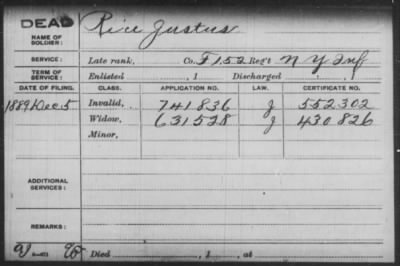 DEAD Rice Justus
NAME OF SOLDIER:
SERVICE: Late rank, Co. F 152 Reg't N Y Inf
TERM OF SERVICE: Enlisted , 1 Discharged , 1
DATE OF FILING. CLASS. APPLICATION NO. LAW. CERTIFICATE NO.
1889 Dec. 5 Invalid, 741836 J 552302
Widow, 631528 J 430826
Minor,
ADDITIONAL SERVICES:
REMARKS:
Died , 1 , at